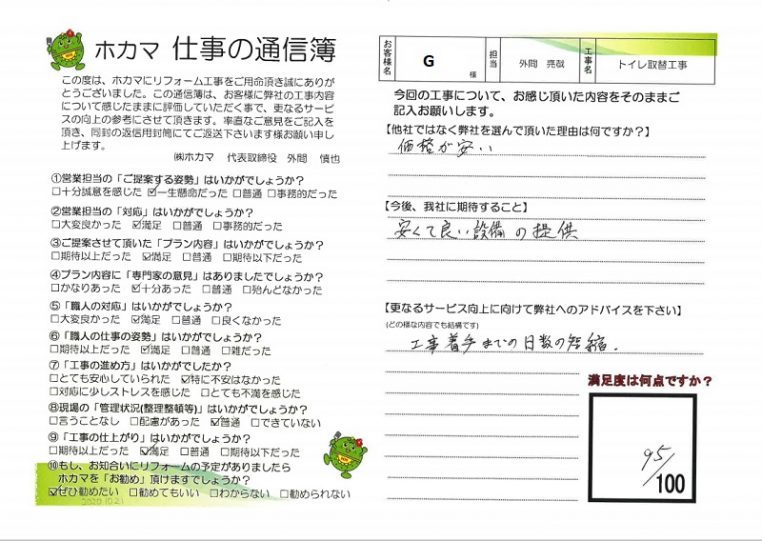 ホカマ 仕事の通信簿
この度は、ホカマにリフォーム工事をご用命頂き誠にありが
とうございました。この通信簿は、お客様に弊社の工事内容
について感じたままに評価していただく事で、更なるサービ
スの向上の参考にさせて頂きます。率直なご意見をご記入を
頂き、同封の返信用封筒にてご返送下さいます様お願い申し
上げます。
㈱ホカマ 代表取締役 外間 慎也
①営業担当の「ご提案する姿勢」はいかがでしょうか？
□十分誠意を感じた ☑一生懸命だった □普通 □事務的だった
②営業担当の「対応」はいかがでしょうか？
□大変良かった ☑満足 □普通 □事務的だった
③ご提案させて頂いた「プラン内容」はいかがでしょうか？
□期待以上だった ☑満足 □普通 □期待以下だった
④プラン内容に「専門家の意見」はありましたでしょうか？
□かなりあった ☑十分あった □普通 □殆んどなかった
⑤「職人の対応」はいかがでしょうか？
□大変良かった ☑満足 □普通 □良くなかった
⑥「職人の仕事の姿勢」はいかがでしょうか？
□期待以上だった ☑満足 □普通 □雑だった
⑦「工事の進め方」はいかがでしたか？
□とても安心していられた ☑特に不安はなかった
□対応に少しストレスを感じた □とても不満を感じた
⑧現場の「管理状況(整理整頓等)」はいかがでしょうか？
□言うことなし □配慮があった ☑普通 □できていない
⑨「工事の仕上がり」はいかがでしょうか？
□期待以上だった ☑満足 □普通 □期待以下だった
⑩もし、お知合いにリフォームの予定がありましたら
ホカマを「お勧め」頂けますでしょうか？
☑ぜひ勧めたい □勧めてもいい □わからない □勧められない
2020.10.21
お客様名 G 様 担当 外間 亮哉 工事名 トイレ取替工事
今回の工事について、お感じ頂いた内容をそのままご
記入お願いします。
【他社ではなく弊社を選んで頂いた理由は何ですか？】
価格が安い
【今後、我社に期待すること】
安くて良い設備の提供
【更なるサービス向上に向けて弊社へのアドバイスを下さい】
(どの様な内容でも結構です)
工事着手までの日数の短縮.
満足度は何点ですか？
95/100